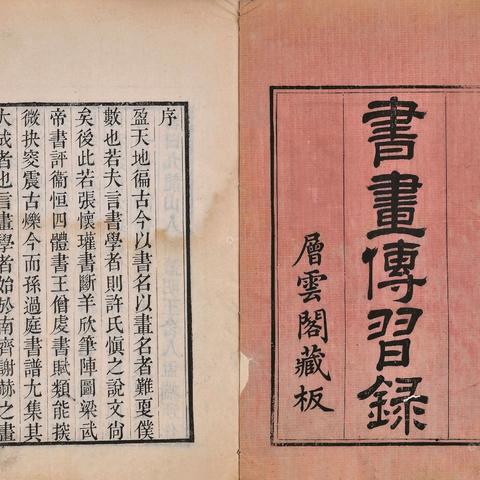 書畫傳習録
層雲閣藏板
序
盈天地徧古今以書名以畫名者難更僕
數也若夫言書學者則許氏慎之說文尙
矣後此若張懷瓘書斷羊欣筆陣圖梁武
帝書評衞恒四體書王僧虔書賦類能撰
微抉窔震古爍今而孫過庭書譜尢集其
大成者也言畫學者始於南齊謝赫之畫